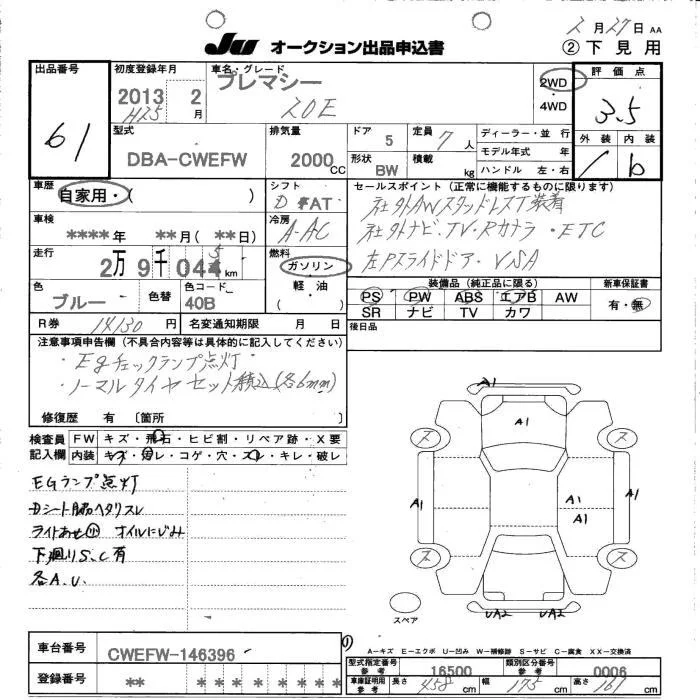 2月27日 AA
JU オークション出品申込書 ②下見用
出品番号 61
初度登録年月 2013 2月 H25
車名・グレード プレマシー 20E
2WD・4WD
評価点 3.5
外装 内装 b
型式 DBA-CWEFW
排気量 2000CC
ドア 5
形状 BW
定員 7人
積載 kg
ディーラー・並行
モデル年式 年
ハンドル 左・右
車歴 自家用・( )
シフト FAT
セールスポイント (正常に機能するものに限ります)
社外AWスタッドレスT装着
社外ナビ・TV・Rカメラ・ETC
左Pスライドドア・VSA
車検 ****年 **月(**日)
冷房 A-AC
走行 2万9千044km
燃料 ガソリン・軽油・( )
色 ブルー
色替
色コード 40B
装備品 (純正品に限る)
PS PW ABS エアB AW
SR ナビ TV カワ
新車保証書 有・無
R券 14130円
名変通知期限 月 日
後日品
注意事項申告欄 (不具合内容等は具体的に記入してください)
・Egチェックランプ点灯
・ノーマルタイヤセット積込(各6mm)
修復歴 有 〔箇所 〕
検査員記入欄
FW キズ・飛石・ヒビ割・リペア跡・X要
内装 キズ・汚レ・コゲ・穴・スレ・キレ・破レ
EGランプ点灯
Dシート脇ヘタリスレ
ライトあせ小 オイルにじみ
下廻りS.C有
各A.U.
A1
A1
A1
A1
A1
A1
UA2 UA2
スペア
A-キズ E-エクボ U-凹み W-補修跡 S-サビ C-腐食 XX-交換済
車台番号 CWEFW-146396
登録番号 ** * * * * * * * *
型式指定番号 参考 16500
類別区分番号 参考 0006
車庫証明用 参考 長さ 458cm 幅 175cm 高さ 161cm